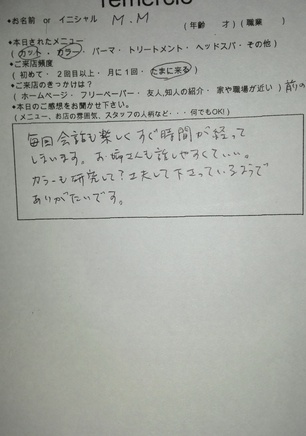 *お名前 or イニシャル M.M
(年齢 才)(職業 )
*本日されたメニュー
(カット・カラー・パーマ・トリートメント・ヘッドスパ・その他)
*ご来店頻度
(初めて・2回目以上・月に1回・たまに来る)
*ご来店のきっかけは?
(ホームページ・フリーペーパー・友人,知人の紹介・家や職場が近い) 前の
*本日のご感想をお聞かせ下さい。
(メニュー、お店の雰囲気、スタッフの人柄など・・・何でもOK!)
毎回会話も楽しくすぐ時間が経って
しまいます。お姉さんも話しやすくていい。
カラーも研究して?工夫して下さっているようで
ありがたいです。